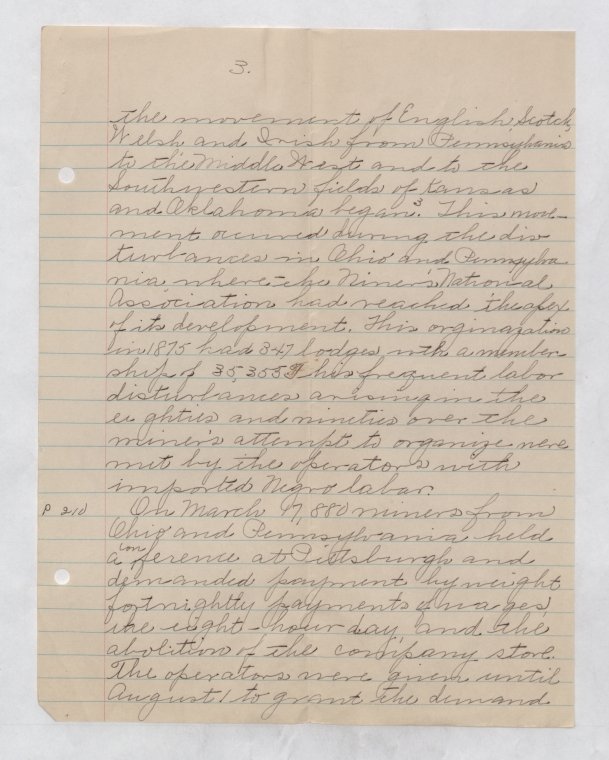 3.
the movement of English, Scotch,
Welsh and Irish from Pennsylvania
to the Middle West and to the
Southwestern fields of Kansas
and Oklahoma began.3 This move-
ment occured during the dis
turbances in Ohio and Pennsylva
nia where the Miner's National
Association had reached the apex
of its development. This orginazation
in 1875 had 347 lodges with a member
ship of 35,355 This frequent labor
disturbances arising in the
eighties and nineties over the
miner's attempt to organize were
met by the operators with
imported Negro labor.
P 210 On March 9, 1880 miners from
Ohio and Pennsylvania held
a conference at Pittsburgh and
demanded payment by weight
fortnightly payments of wages,
the eight-hour day and the
abolition of the company store.
The operators were given until
August 1 to grant the demand